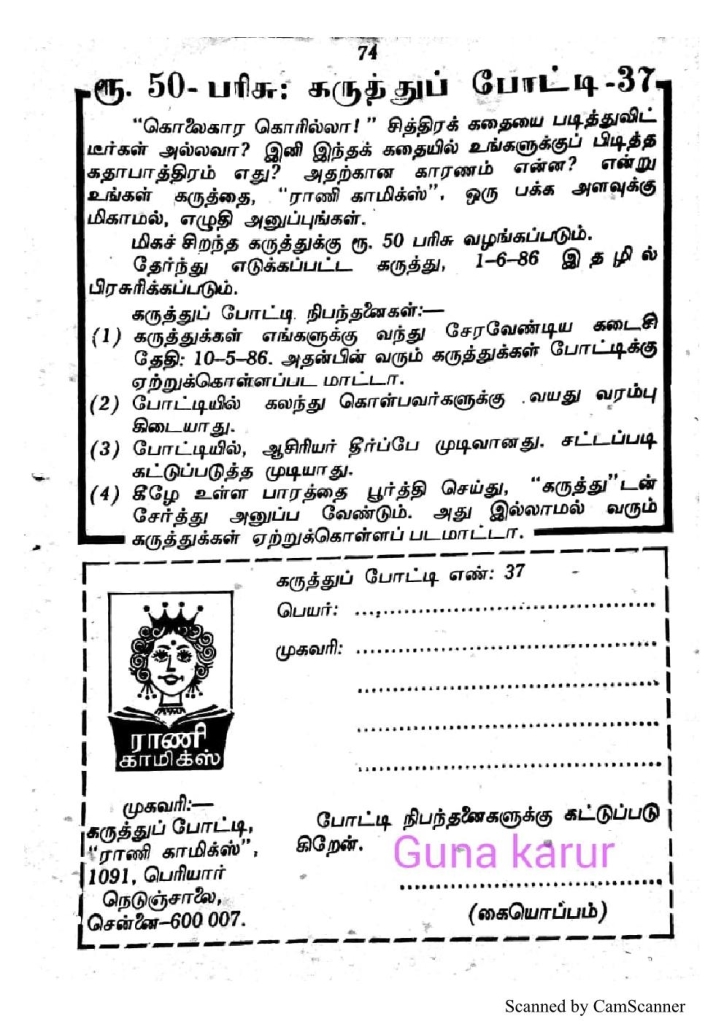 74
ரூ. 50- பரிசு: கருத்துப் போட்டி -37
“கொலைகார கொரில்லா!” சித்திரக் கதையை படித்துவிட்
டீர்கள் அல்லவா? இனி இந்தக் கதையில் உங்களுக்குப் பிடித்த
கதாபாத்திரம் எது? அதற்கான காரணம் என்ன? என்று
உங்கள் கருத்தை, “ராணி காமிக்ஸ்”. ஒரு பக்க அளவுக்கு
மிகாமல், எழுதி அனுப்புங்கள்.
மிகச் சிறந்த கருத்துக்கு ரூ. 50 பரிசு வழங்கப்படும்.
தேர்ந்து எடுக்கப்பட்ட கருத்து, 1-6-86 இதழில்
பிரசுரிக்கப்படும்.
கருத்துப் போட்டி நிபந்தனைகள்:—
(1) கருத்துக்கள் எங்களுக்கு வந்து சேரவேண்டிய கடைசி
தேதி: 10-5-86. அதன்பின் வரும் கருத்துக்கள் போட்டிக்கு
ஏற்றுக்கொள்ளப்பட மாட்டா.
(2) போட்டியில் கலந்து கொள்பவர்களுக்கு வயது வரம்பு
கிடையாது.
(3) போட்டியில், ஆசிரியர் தீர்ப்பே முடிவானது. சட்டப்படி
கட்டுப்படுத்த முடியாது.
(4) கீழே உள்ள பாரத்தை பூர்த்தி செய்து, “கருத்து”டன்
சேர்த்து அனுப்ப வேண்டும். அது இல்லாமல் வரும்
கருத்துக்கள் ஏற்றுக்கொள்ளப் படமாட்டா.
கருத்துப் போட்டி எண்: 37
பெயர்: ........................................
முகவரி: ........................................
........................................
........................................
........................................
ராணி
காமிக்ஸ்
முகவரி:—
கருத்துப் போட்டி,
“ராணி காமிக்ஸ்”,
1091, பெரியார்
நெடுஞ்சாலை,
சென்னை–600 007.
போட்டி நிபந்தனைகளுக்கு கட்டுப்படு
கிறேன்.
Guna karur
........................................
(கையொப்பம்)
Scanned by CamScanner